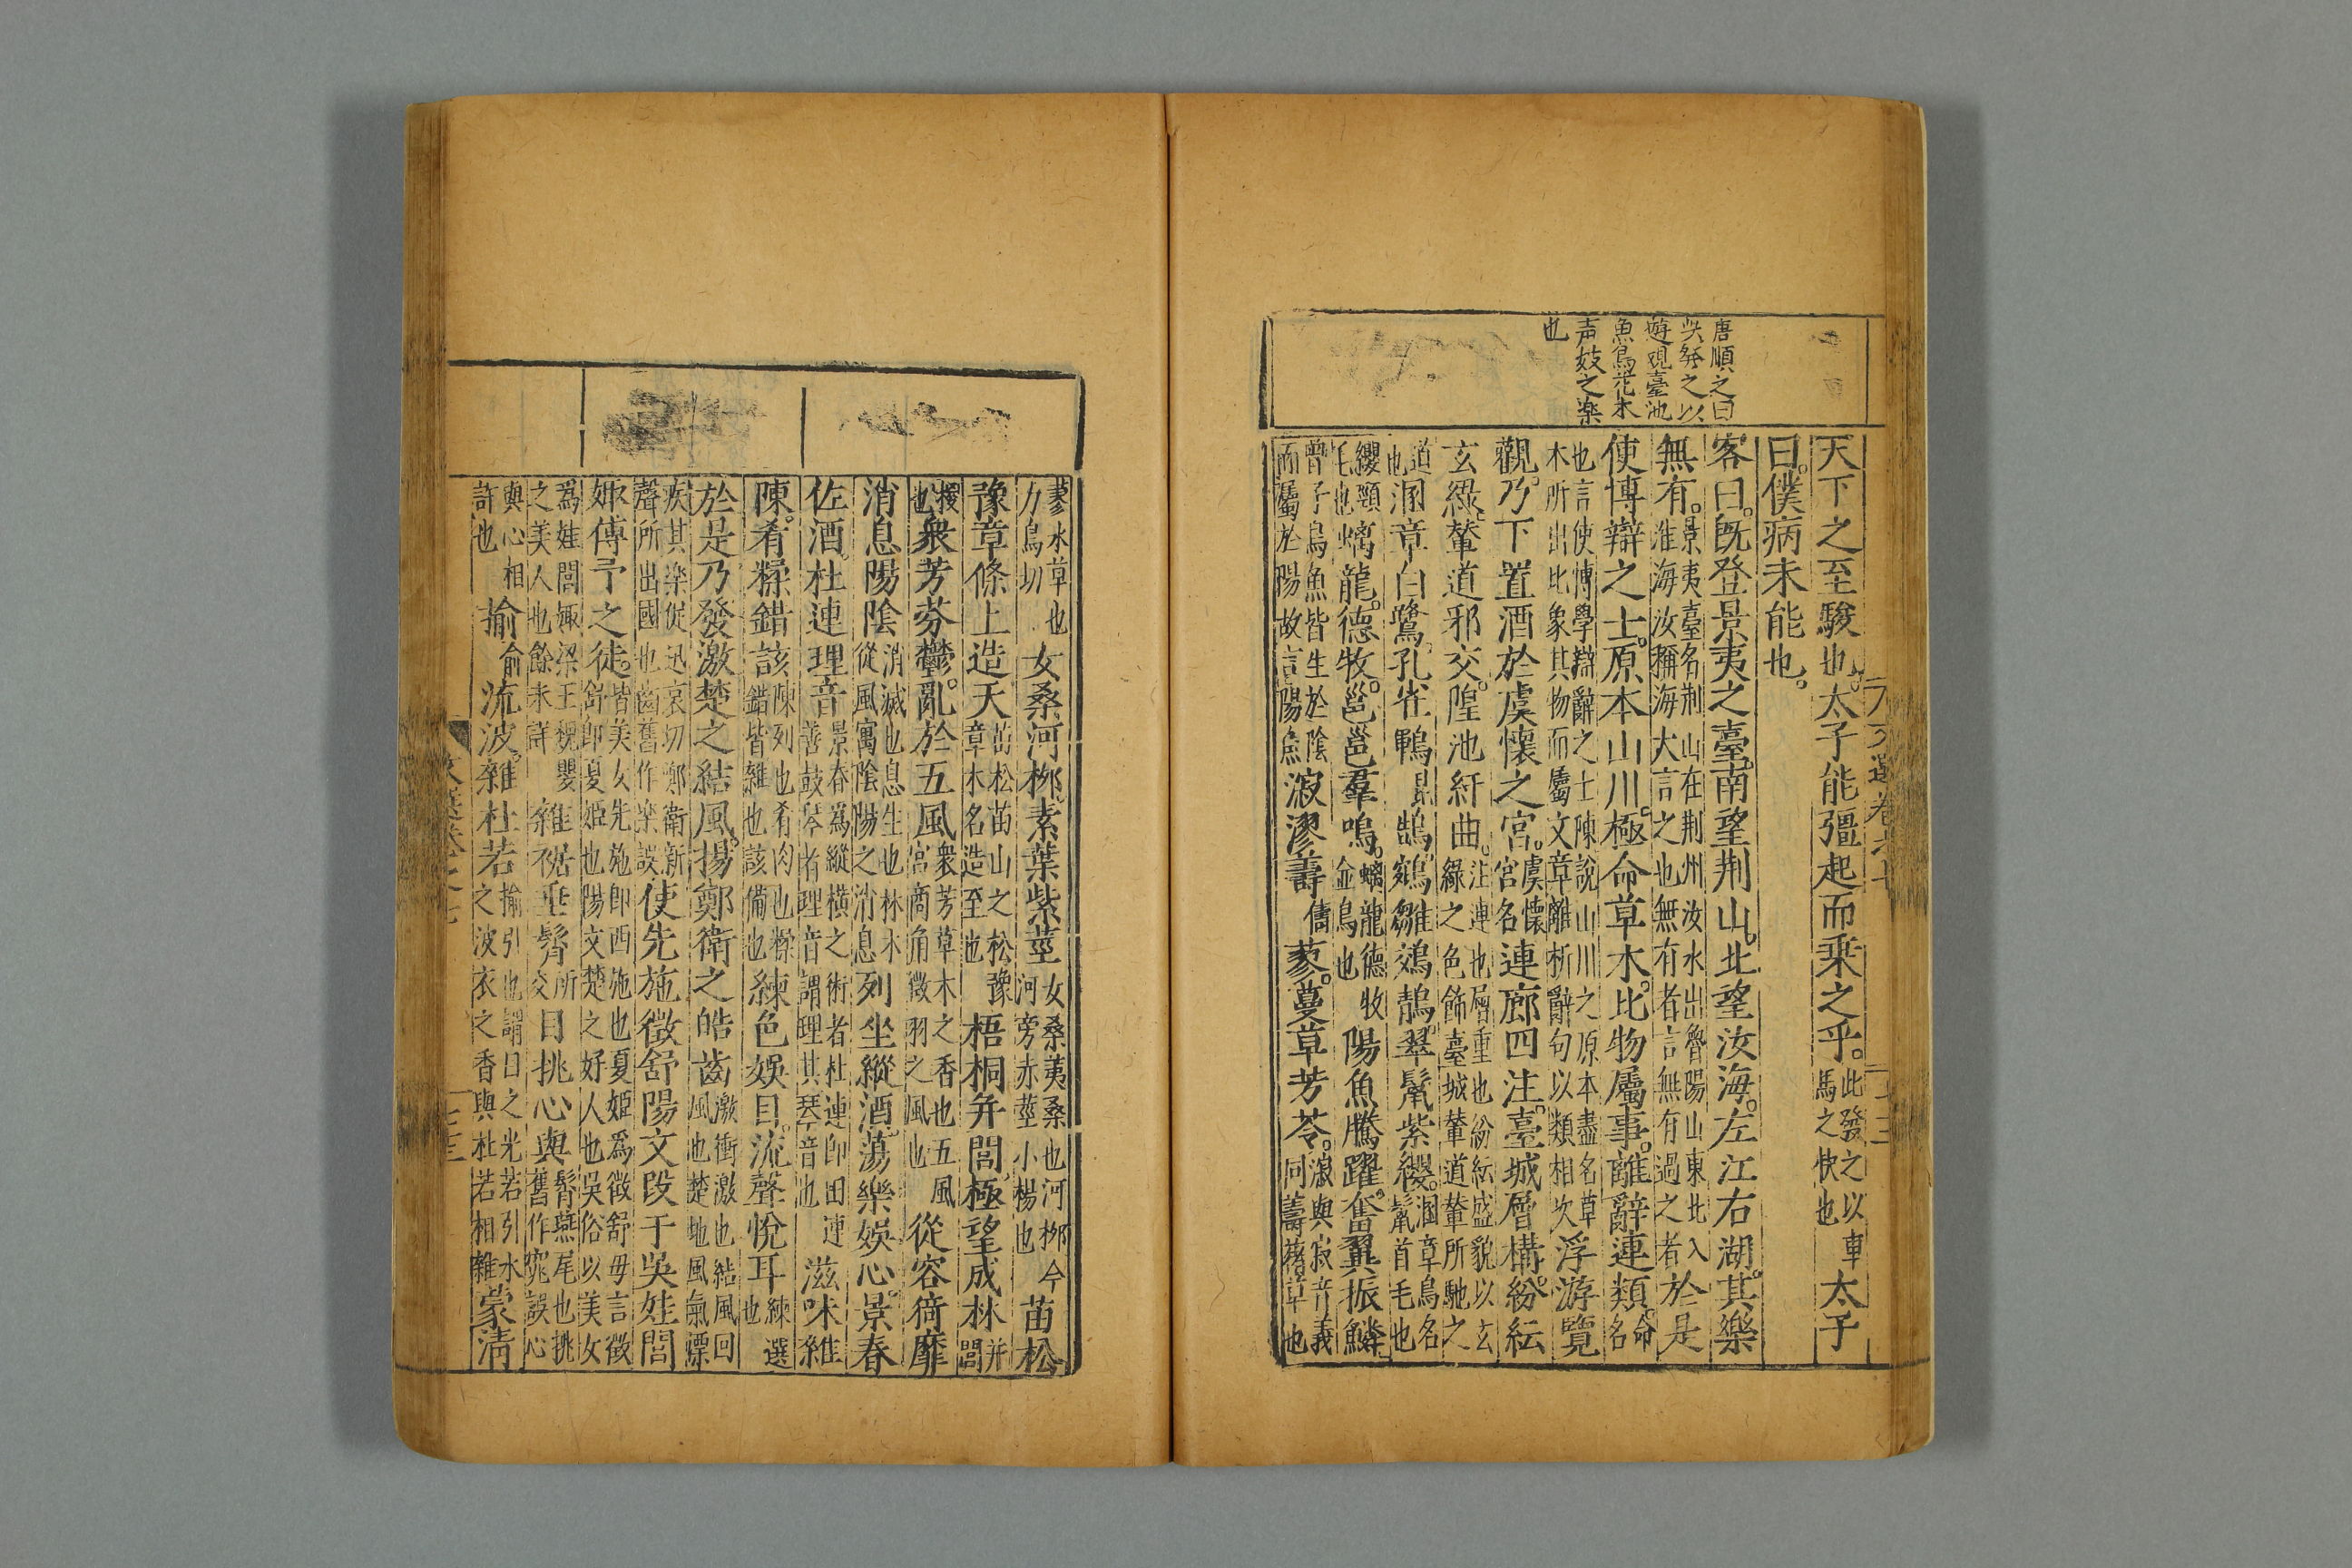 唐順之曰
發之以
遊觀臺池
魚鳥花木
声妓之楽
也
天下之至駿也。太子能彊起而乗之乎。此發之以車馬之快也太子
曰。僕病未能也。
客曰。既登景夷之臺。南望荆山。北望汝海。左江右湖。其樂
無有。景夷臺名荆山在荆州汝水出魯陽山東北入淮海汝稱海大言之也無有者言無有過之者於是
使博辯之士。原本山川。極命草木。比物屬事。離辭連類。命名
也言使博學辯辭之士陳說山川之原本盡名草木所出比象其物而屬文章離析辭句以類相次浮游覽
觀。乃下置酒於虞懷之宮。虞懷宮名連廊四注。臺城層構。紛紜
玄綠。輦道邪交。隍池紆曲。注連也層重也紛紜盛貌以玄綠之色飾臺城輦道輦所馳之
道也溷章白鷺。孔雀鵾昆鵠。鵷鶵鵁鶄。翠鬣紫纓。溷章鳥名鬣首毛也
纓頸毛也螭龍。德牧。邕邕羣鳴。螭龍德牧並鳥也陽魚騰躍。奮翼振鱗。
曾子鳥魚皆生於陰而屬於陽故言陽魚㴸漻薵儔蓼。蔓草芳苓。㴸與寂音義同薵藷草也
文選卷之七
蓼水草也力鳥切女桑河栁。素葉紫莖女桑荑桑也河栁今河旁赤莖小楊也苗松
豫章條上造天苗松苗山之松豫章木名造至也梧桐并閭極望成林并閭
椶也衆芳芬鬱。亂於五風衆芳草木之香也五風宮商角徵羽之風也從容猗靡
消息陽陰消滅也息生也林木從風寓陰陽之消息列坐縱酒。蕩樂娛心。景春
佐酒。杜連理音景春爲縱橫之術者杜連即田連善鼓琴者理音謂理其琴音也滋味雜
陳。肴糅錯該陳列也肴肉也糅錯皆雜也該備也練色娛目。流聲悅耳練選也
於是乃發激楚之結風。揚鄭衛之皓齒激衝激也結風回風也楚地風氣漂
疾其楽促迅哀切鄭衛新聲所出國也齒舊作楽誤使先施徵舒陽文段干吳娃閭
娵傅予之徒。皆美女先施即西施也夏姬爲徵舒毋言徵舒即夏姬也陽文楚之好人也吳俗以美女
爲娃閭娵梁王魏嬰之美人也餘未詳雜裾垂髾所交目挑心與髾燕尾也挑舊作窕誤心
與心相許也揄俞流波。雜杜若揄引也謂目之光若引水之波衣之香與杜若相雜蒙清
文選卷之七